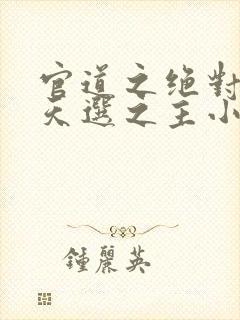 官道之绝對
天選之主小
鍾麗英